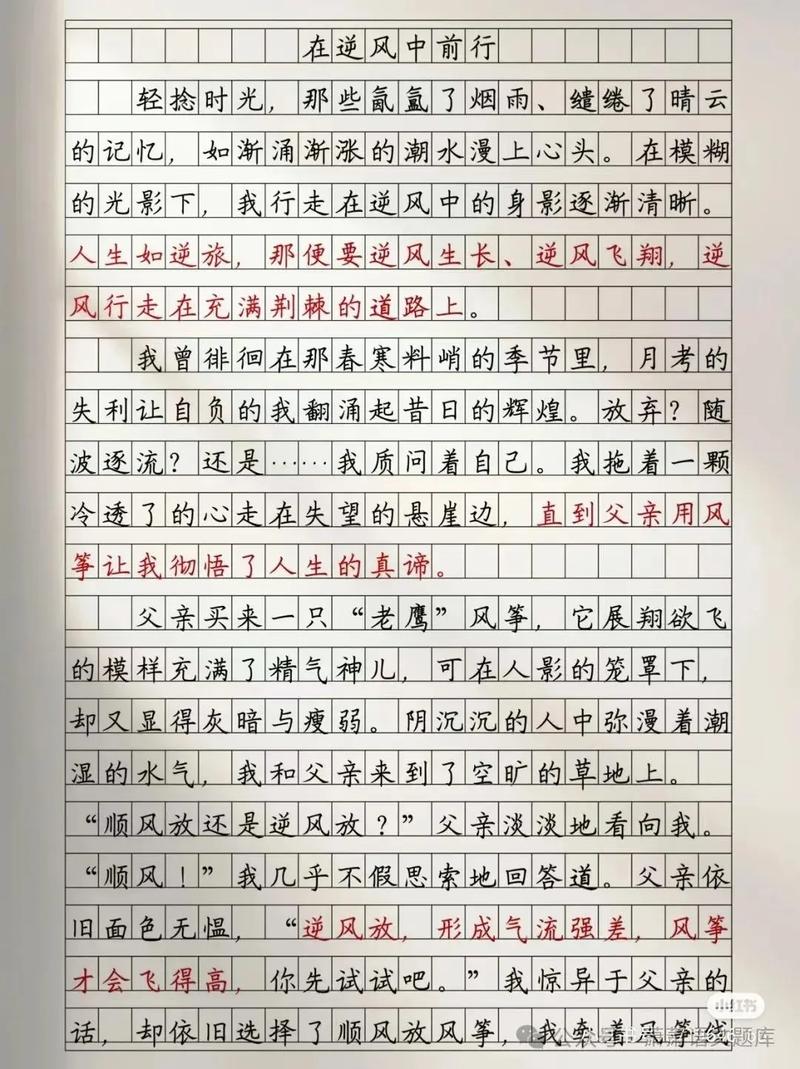 在逆风中前行
轻捻时光，那些氤氲了烟雨、缱绻了晴云
的记忆，如渐涌渐涨的潮水漫上心头。在模糊
的光影下，我行走在逆风中的身影逐渐清晰。
人生如逆旅，那便要逆风生长、逆风飞翔，逆
风行走在充满荆棘的道路上。
我曾徘徊在那春寒料峭的季节里，月考的
失利让自负的我翻涌起昔日的辉煌。放弃？随
波逐流？还是……我质问着自己。我拖着一颗
冷透了的心走在失望的悬崖边，直到父亲用风
筝让我彻悟了人生的真谛。
父亲买来一只“老鹰”风筝，它展翔欲飞
的模样充满了精气神儿，可在人影的笼罩下，
却又显得灰暗与瘦弱。阴沉沉的人中弥漫着潮
湿的水气，我和父亲来到了空旷的草地上。
“顺风放还是逆风放？”父亲淡淡地看向我。
“顺风！”我几乎不假思索地回答道。父亲依
旧面色无愠，“逆风放，形成气流强差，风筝
才会飞得高，你先试试吧。”我惊异于父亲的
话，却依旧选择了顺风放风筝，我牵着风筝线
小红书
公众号
题库